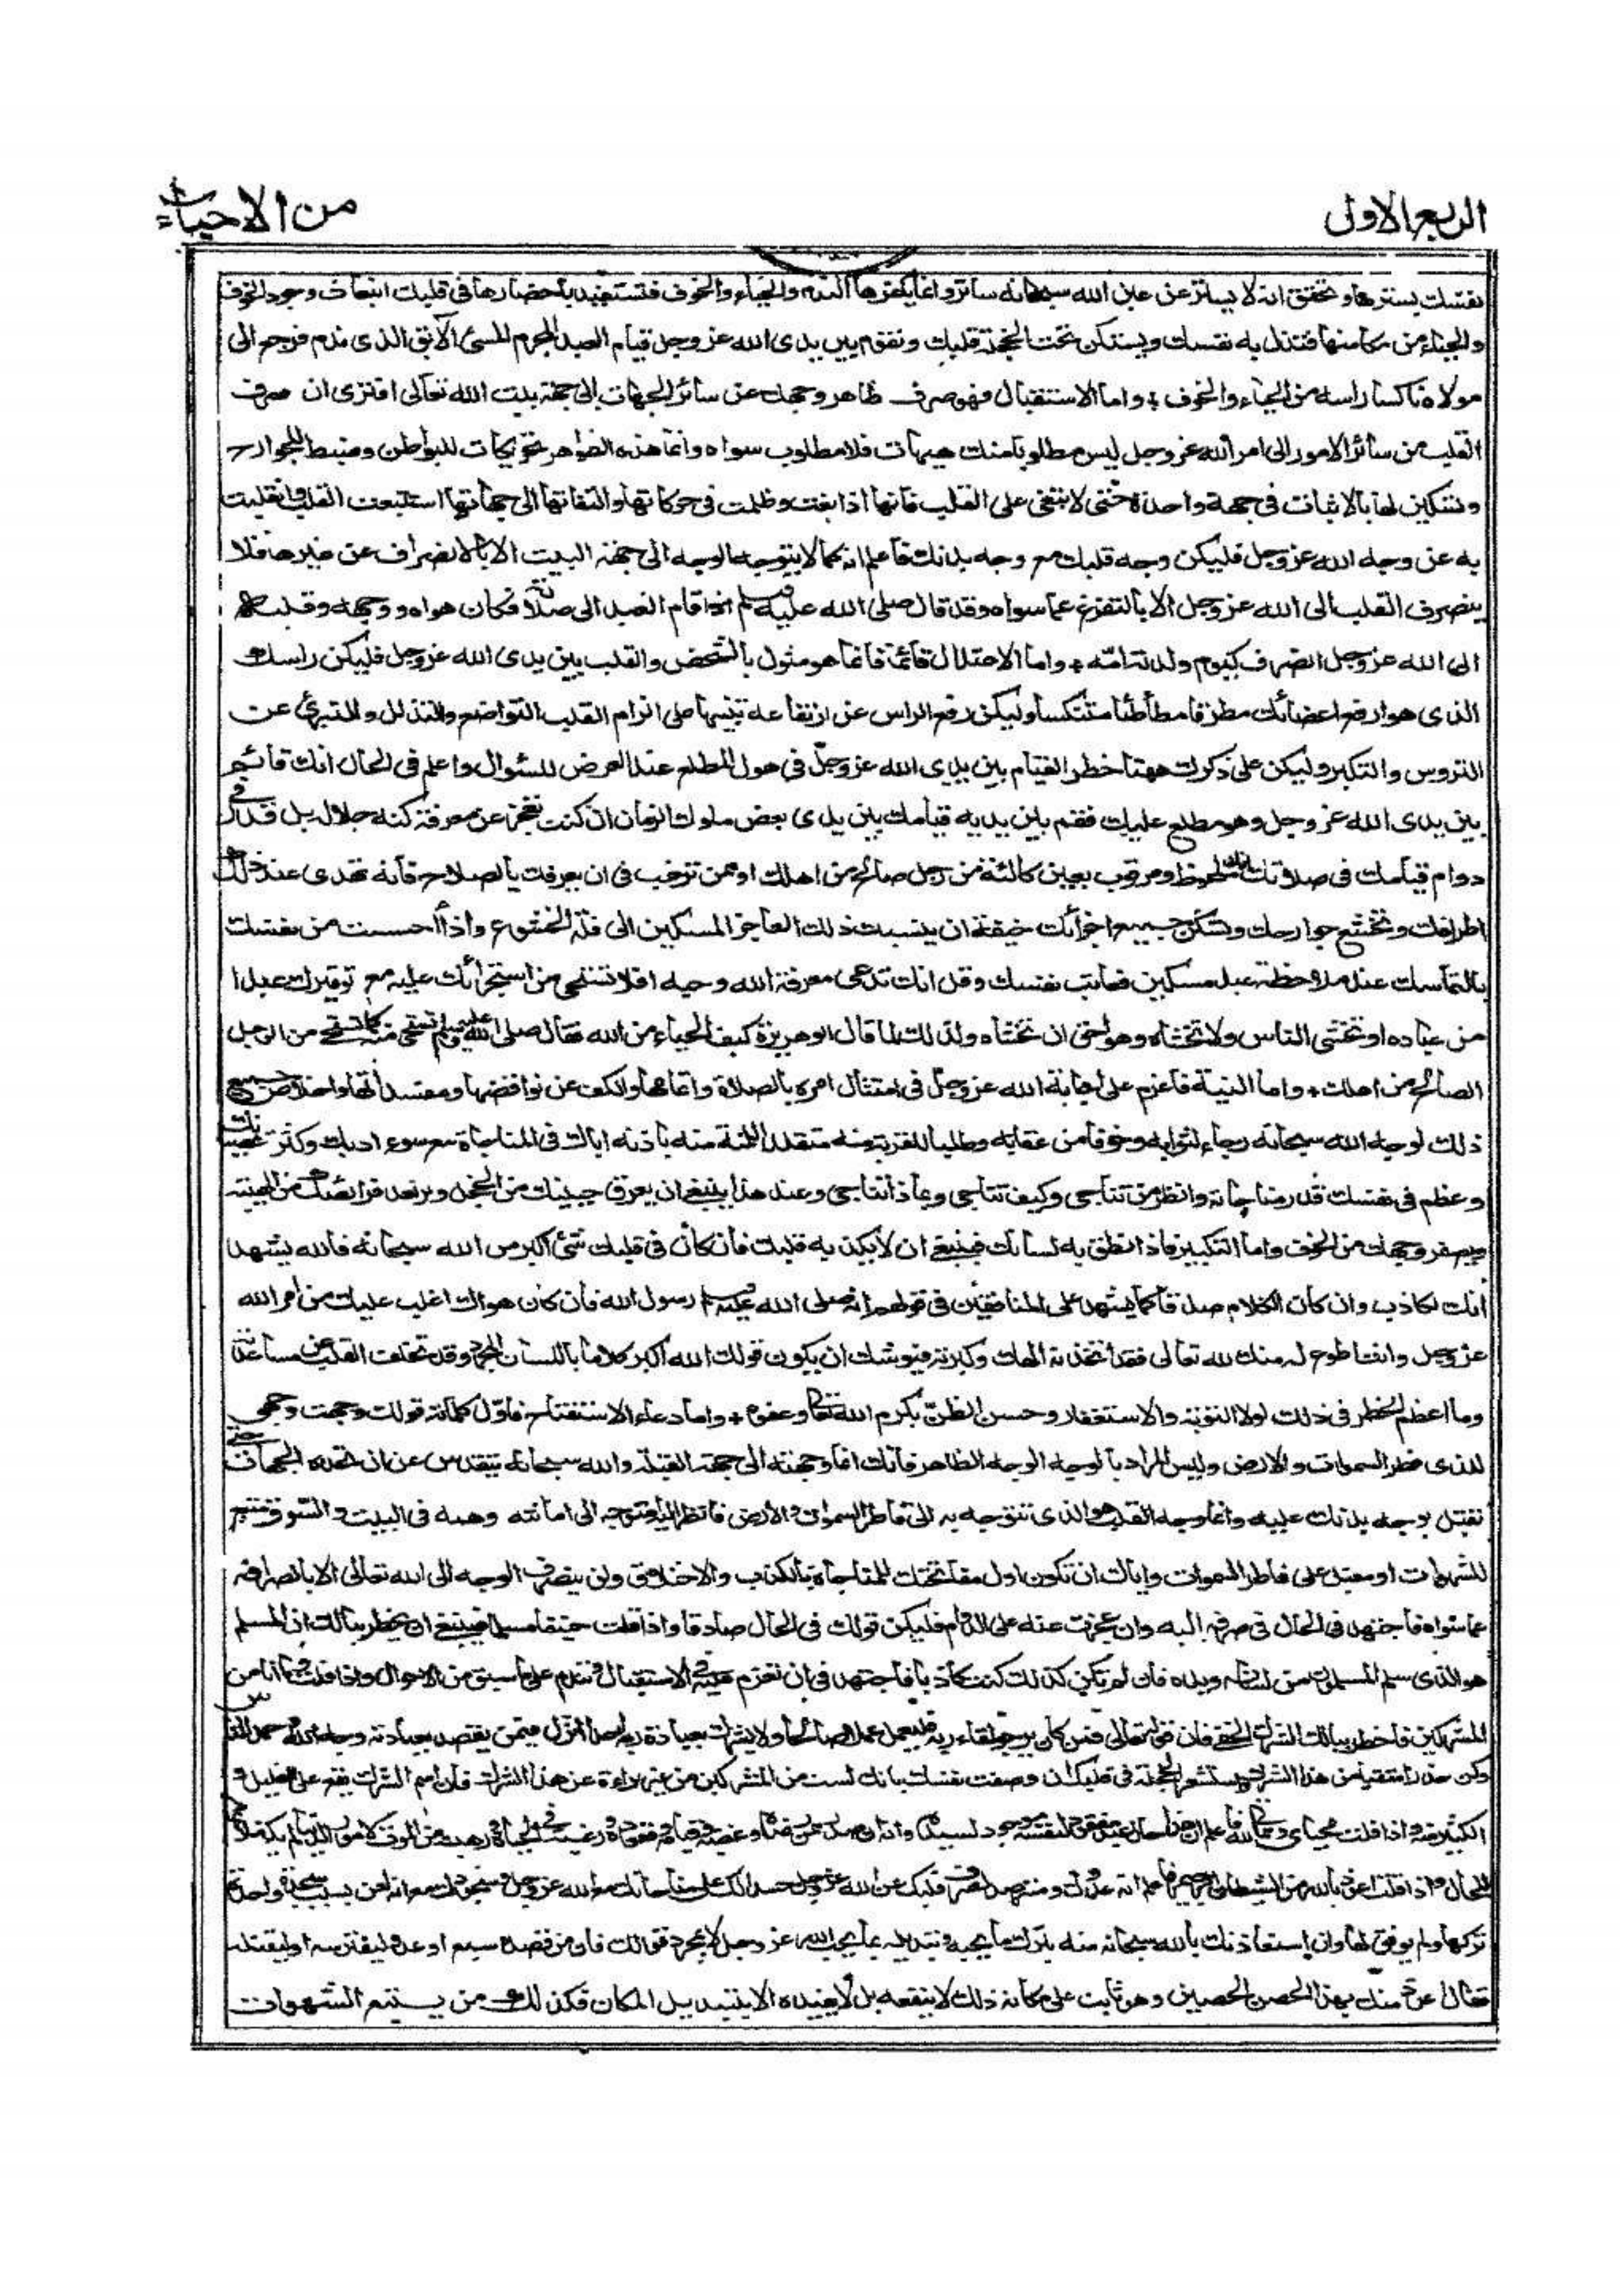 الربع الاول
من الاحياء
نفسك بسترها وتحقق انه لا يستر عن عين الله سبحانه ساتر وانما يكفرها الندم والحياء والخوف فتستفيد باحضارها في قلبك انبعاث وجود الخوف
والحياء من مكامنها فتذل به نفسك ويستكن تحت الخجلة قلبك وتقوم بين يدى الله عز وجل قيام العبد المجرم المسئ الآبق الذى ندم فرجع الى
مولاه ناكسا راسه من الحياء والخوف واما الاستقبال فهو صرف ظاهر وجهك عن سائر الجهات الى جهة بيت الله تعالى افترى ان صرف
القلب من سائر الامور الى امر الله عز وجل ليس مطلوبا منك هيهات فلا مطلوب سواه وانما هذه الظواهر تحريكات للبواطن وضبط للجوارح
وتسكين لها بالاثبات في جهة واحدة حتى لا تبغى على القلب فانها اذا بغت وظلمت في حركاتها والتفاتها الى جهاتها استتبعت القلب وانقلبت
به عن وجه الله عز وجل فليكن وجه قلبك مع وجه بدنك فاعلم انه كما لا يتوجه الوجه الى جهة البيت الا بالانصراف عن غيرها فلا
ينصرف القلب الى الله عز وجل الا بالتفرغ عما سواه وقد قال صلى الله عليه وسلم اذا قام العبد الى صلاته فكان هواه ووجهه وقلبه
الى الله عز وجل انصرف كيوم ولدته امه واما الاعتدال قائما فانما هو مثول بالشخص والقلب بين يدى الله عز وجل فليكن راسك
الذى هو ارفع اعضائك مطرقا مطأطئا متنكسا وليكن رفع الراس عن ارتفاعه تنبيها على الزام القلب التواضع والتذلل والتبرئ عن
التروس والتكبر وليكن على ذكرك ههنا خطر القيام بين يدى الله عز وجل في هول المطلع عند العرض للسؤال واعلم في الحال انك قائم
بين يدى الله عز وجل وهو مطلع عليك فقم بين يديه قيامك بين يدى بعض ملوك الزمان ان كنت تعجز عن معرفة كنه جلاله بل قدر في
دوام قيامك في صلاتك انك ملحوظ ومرقوب بعين كالئة من رجل صالح من اهلك او ممن ترغب في ان يعرفك بالصلاح فانه تهدى عند ذلك
اطرافك وتخشع جوارحك وتسكن جميع اجزائك خيفة ان ينسبك ذلك العاجز المسكين الى قلة الخشوع واذا احسست من نفسك
بالتماسك عند ملاحظة عبد مسكين فعاتب نفسك وقل انك تدعى معرفة الله وحبه افلا تستحى من استجرائك عليه مع توقيرك عبدا
من عباده او تخشى الناس ولا تخشاه وهو احق ان تخشاه ولذلك لما قال ابو هريرة كيف الحياء من الله فقال صلى الله عليه وسلم تستحى منه كما تستحى من الرجل
الصالح من اهلك واما النية فاعزم على اجابة الله عز وجل في امتثال امره بالصلاة واتمامها والكف عن نواقضها ومفسداتها واخلاص جميع
ذلك لوجه الله سبحانه رجاء لثوابه وخوفا من عقابه وطلبا للقربة منه متقلدا للمنة منه باذنه اياك في المناجاة مع سوء ادبك وكثرة عصيانك
وعظم في نفسك قدر مناجاته وانظر من تناجى وكيف تناجى وبماذا تناجى وعند هذا ينبغى ان يعرق جبينك من الخجل وترتعد فرائصك من الهيبة
ويصفر وجهك من الخوف واما التكبير فاذا نطق به لسانك فينبغى ان لا يكذبه قلبك فان كان في قلبك شئ اكبر من الله سبحانه فالله يشهد
انك لكاذب وان كان الكلام صدقا كما يشهد على المنافقين في قولهم انه صلى الله عليه وسلم رسول الله فان كان هواك اغلب عليك من امر الله
عز وجل وانت اطوع له منك لله تعالى فقد اتخذته الهك وكبرته فيوشك ان يكون قولك الله اكبر كلاما باللسان المجرد وقد تخلف القلب عن مساعدته
وما اعظم الخطر في ذلك لولا التوبة والاستغفار وحسن الظن بكرم الله تعالى وعفوه واما دعاء الاستفتاح فاول كلماته قولك وجهت وجهى
للذى فطر السموات والارض وليس المراد بالوجه الوجه الظاهر فانك انما وجهته الى جهة القبلة والله سبحانه يتقدس عن ان تحده الجهات حتى
تقبل بوجه بدنك عليه وانما وجه القلب هو الذى تتوجه به الى فاطر السموات والارض فانظر اليه امتوجه الى امانيه وهمه في البيت والسوق متبع
للشهوات او مقبل على فاطر السموات واياك ان تكون اول مفاتحتك للمناجاة بالكذب والاختلاق ولن ينصرف الوجه الى الله تعالى الا بانصرافه
عما سواه فاجتهد في الحال في صرفه اليه وان عجزت عنه على الدوام فليكن قولك في الحال صادقا واذا قلت حنيفا مسلما فينبغى ان يخطر ببالك ان المسلم
هو الذى سلم المسلمون من لسانه ويده فان لم تكن كذلك كنت كاذبا فاجتهد في ان تعزم عليه في الاستقبال وتندم على ما سبق من الاحوال واذا قلت وما انا من
المشركين فاخطر ببالك الشرك الخفى فان قوله تعالى فمن كان يرجو لقاء ربه فليعمل عملا صالحا ولا يشرك بعبادة ربه احدا نزل فيمن يقصد بعبادته وجه الله وحمد الناس
وكن حذرا متقيا من هذا الشرك واستشعر الخجلة في قلبك ان وصفت نفسك بانك لست من المشركين من غير براءة عن هذا الشرك فان اسم الشرك يقع على القليل و
الكثير منه واذا قلت محياى ومماتى لله فاعلم ان هذا حال عبد مفقود لنفسه موجود لسيده وانه ان صدر ممن رضاه وغضبه وقيامه وقعوده ورغبته في الحياة ورهبته من الموت لامور الدنيا لم يكن ملائما
للحال واذا قلت اعوذ بالله من الشيطان الرجيم فاعلم انه عدوك ومترصد لصرف قلبك عن الله عز وجل حسدا لك على مناجاتك مع الله عز وجل وسجودك له مع انه لعن بسبب سجدة واحدة
تركها ولم يوفق لها وان استعاذتك بالله سبحانه منه بترك ما يحبه وتبديله بما يحب الله عز وجل لا بمجرد قولك فان من قصده سبع او عدو ليفترسه او ليقتله
فقال اعوذ منك بهذا الحصن الحصين وهو ثابت على مكانه ذلك لا ينفعه بل لا يعيذه الا تبديل المكان فكذلك من يتبع الشهوات